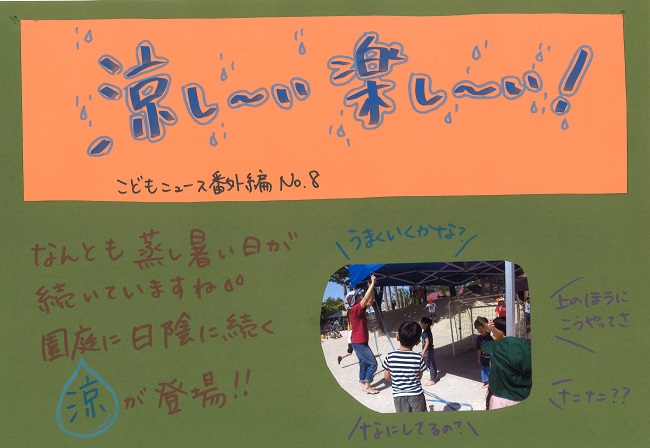 涼し〜い 楽し〜い！
こどもニュース番外編 No.8
なんとも蒸し暑い日が
続いていますね。。
園庭に日陰に続く
涼が登場!!
うまくいくかな？
上のほうに
こうやってさ
ナニナニ??
なにしてるの？